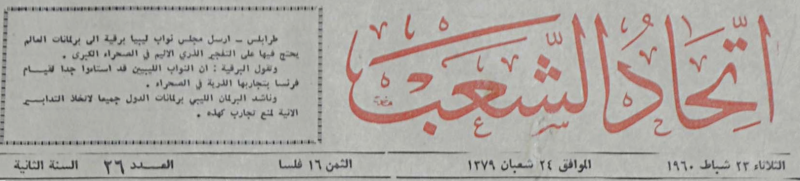 اتحاد الشعب
طرابلس - ارسل مجلس نواب ليبيا برقية الى برلمانات العالم
يحتج فيها على التفجير الذري الاليم في الصحراء الكبرى .
وتقول البرقية : ان النواب الليبيين قد استاءوا جدا لقيام
فرنسا بتجاربها الذرية في الصحراء .
وناشد البرلمان الليبي برلمانات الدول جميعا لاتخاذ التدابير
الاتية لمنع تجارب كهذه .
الثلاثاء ٢٣ شباط ١٩٦٠ الموافق ٢٤ شعبان ١٣٧٩ الثمن ١٦ فلسا العدد ٢٦ السنة الثانية